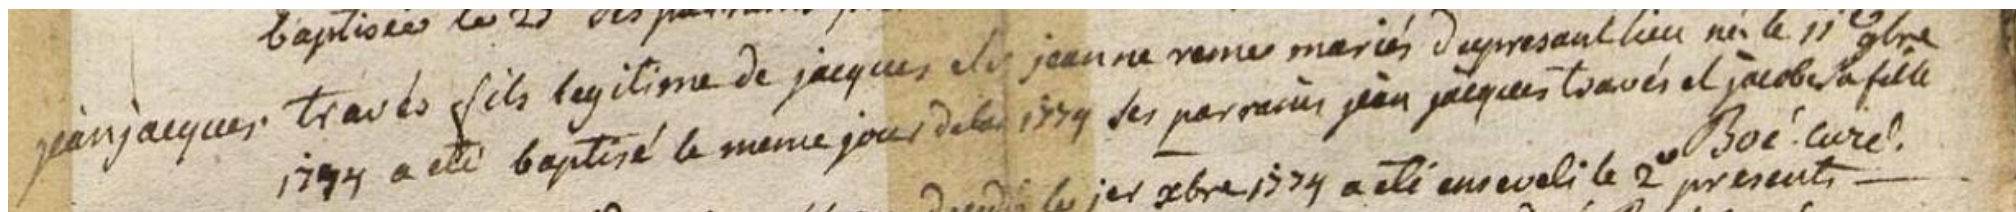 baptisée le 23 ses parrains
jean jacques través fils legitime de jacques et de jeanne reme mariés du presant lieu né le 11e 9bre
1774 a eté baptisé le meme jour de lan 1774 ses parrains jean jacques través et jacobe sa fille
Boé curé.
le 1er xbre 1774 a eté enseveli le 2e presents